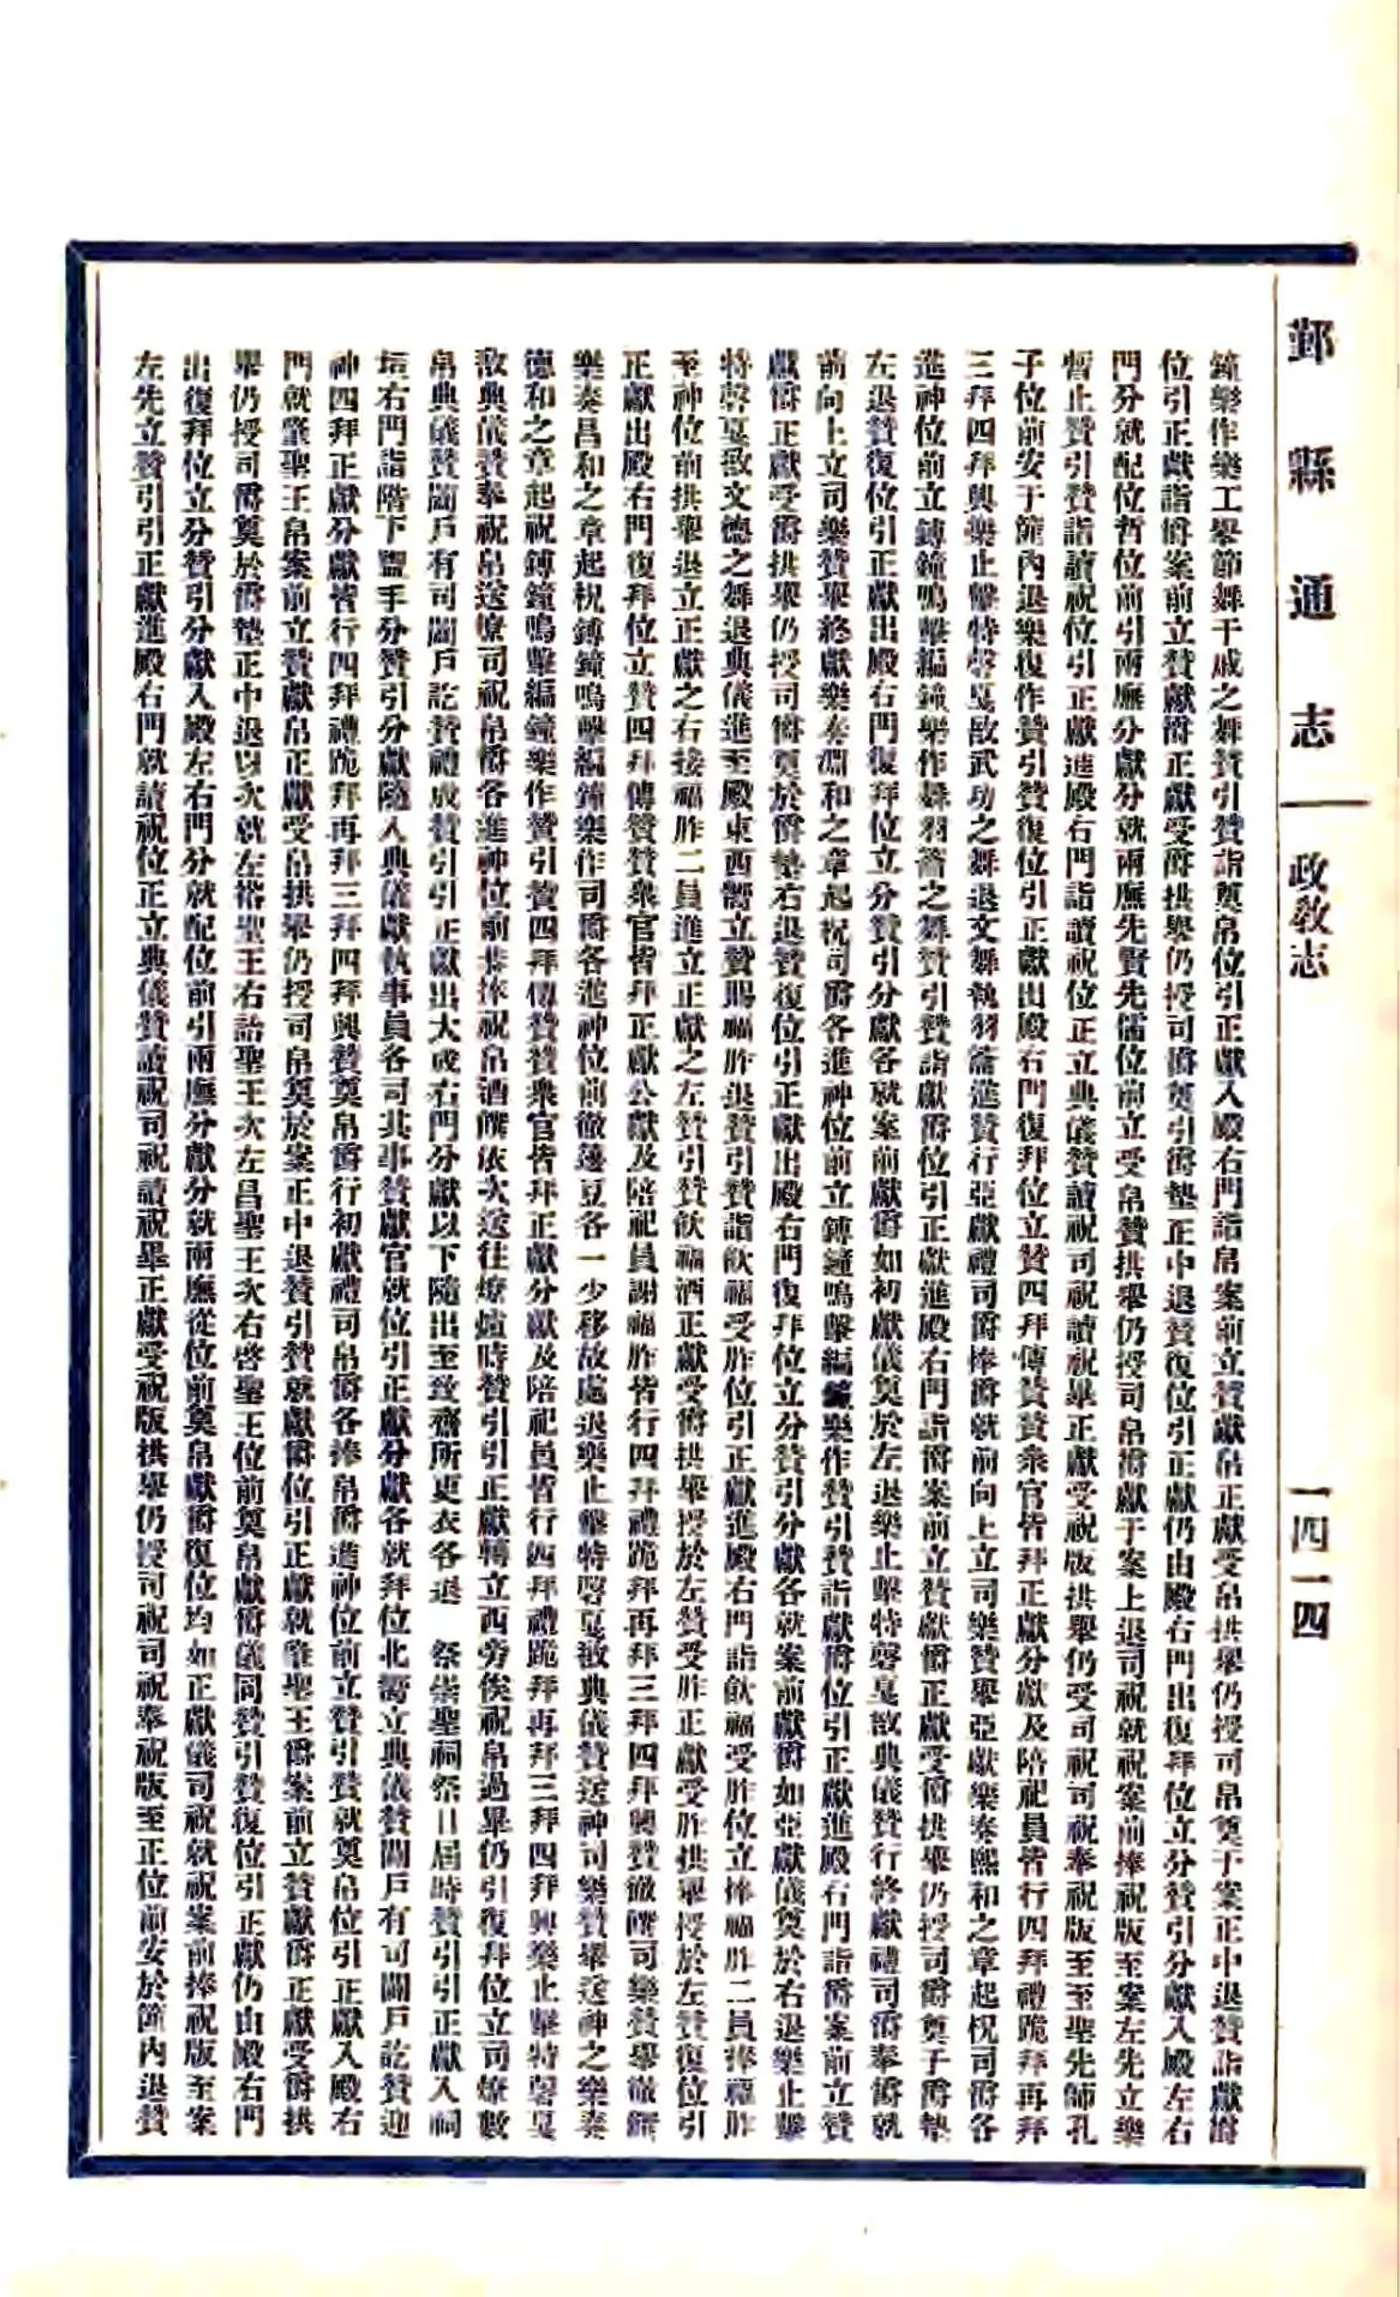 鄞縣通志
政教志
一四一四
鐘樂作樂工舉節舞干戚之舞贊引贊詣奠帛位引正獻入殿右門詣帛案前立贊獻帛正獻受帛拱舉仍授司帛奠于案正中退贊詣獻爵
位引正獻詣爵案前立贊獻爵正獻受爵拱舉仍授司爵奠引爵墊正中退贊復位引正獻仍由殿右門出復拜位立分贊引分獻入殿左右
門分就配位哲位前引兩廡分獻分就兩廡先賢先儒位前立受帛贊拱舉仍授司帛爵獻于案上退司祝就祝案前捧祝版至案左先立樂
暫止贊引贊詣讀祝位引正獻進殿右門詣讀祝位正立典儀贊讀祝司祝讀祝畢正獻受祝版拱舉仍受司祝司祝奉祝版至至聖先師孔
子位前安于篚內退樂復作贊引贊復位引正獻出殿右門復拜位立贊四拜傳贊贊衆官皆拜正獻分獻及陪祀員皆行四拜禮跪拜再拜
三拜四拜興樂止擊特磬戛敔武功之舞退文舞執羽籥進贊行亞獻禮司爵捧爵就前向上立司樂贊舉亞獻樂奏熙和之章起柷司爵各
進神位前立鎛鐘鳴擊編鐘樂作舞羽籥之舞贊引贊詣獻爵位引正獻進殿右門詣爵案前立贊獻爵正獻受爵拱舉仍授司爵奠于爵墊
左退贊復位引正獻出殿右門復拜位立分贊引分獻各就案前獻爵如初獻儀奠於左退樂止擊特磬戛敔典儀贊行終獻禮司爵奉爵就
前向上立司樂贊舉終獻樂奏淵和之章起柷司爵各進神位前立鎛鐘鳴擊編鐘樂作贊引贊詣獻爵位引正獻進殿右門詣爵案前立贊
獻爵正獻受爵拱舉仍授司爵奠於爵墊右退贊復位引正獻出殿右門復拜位立分贊引分獻各就案前獻爵如亞獻儀奠於右退樂止擊
特磬戛敔文德之舞退典儀進至殿東西嚮立贊賜福胙退贊引贊詣飲福受胙位引正獻進殿右門詣飲福受胙位立捧福胙二員捧福胙
至神位前拱舉退立正獻之右接福胙二員進立正獻之左贊引贊飲福酒正獻受爵拱舉授於左贊受胙正獻受胙拱舉授於左贊復位引
正獻出殿右門復拜位立贊四拜傳贊贊衆官皆拜正獻公獻及陪祀員謝福胙皆行四拜禮跪拜再拜三拜四拜興贊徹饌司樂贊舉徹饌
樂奏昌和之章起柷鎛鐘鳴擊編鐘樂作司爵各進神位前徹籩豆各一少移故處退樂止擊特磬戛敔典儀贊送神司樂贊舉送神之樂奏
德和之章起柷鎛鐘鳴擊編鐘樂作贊引贊四拜傳贊贊衆官皆拜正獻分獻及陪祀員皆行四拜禮跪拜再拜三拜四拜興樂止擊特磬戛
敔典儀贊奉祝帛送燎司祝帛爵各進神位前恭捧祝帛酒饌依次送往燎爐時贊引引正獻轉立西旁俟祝帛過畢仍引復拜位立司燎數
帛典儀贊闔戶有司闔戶訖贊禮成贊引引正獻出大成右門分獻以下隨出至致齋所更衣各退　祭崇聖祠祭日屆時贊引引正獻入祠
垣右門詣階下盥手分贊引分獻隨入典儀獻執事員各司其事贊獻官就位引正獻分獻各就拜位北嚮立典儀贊闢戶有司闢戶訖贊迎
神四拜正獻分獻皆行四拜禮跪拜再拜三拜四拜興贊奠帛爵行初獻禮司帛爵各捧帛爵進神位前立贊引贊就奠帛位引正獻入殿右
門就肇聖王帛案前立贊獻帛正獻受帛拱舉仍授司帛奠於案正中退贊引贊就獻爵位引正獻就肇聖王爵案前立贊獻爵正獻受爵拱
舉仍授司爵奠於爵墊正中退以次就左裕聖王右詒聖王次左昌聖王次右啓聖王位前奠帛獻爵儀同贊引贊復位引正獻仍由殿右門
出復拜位立分贊引分獻入殿左右門分就配位前引兩廡分獻分就兩廡從位前奠帛獻爵復位均如正獻儀司祝就祝案前捧祝版至案
左先立贊引引正獻進殿右門就讀祝位正立典儀贊讀祝司祝讀祝畢正獻受祝版拱舉仍授司祝司祝奉祝版至正位前安於篚內退贊